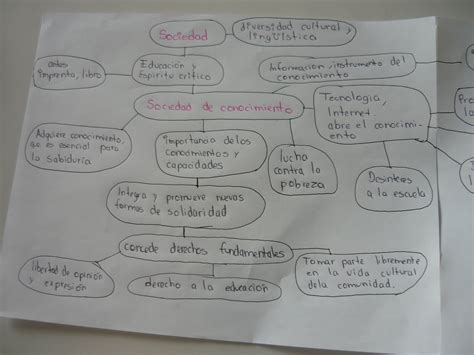 Sociedad
diversidad cultural y
lingüística
antes
imprenta, libro
Educación y
Espíritu crítico
Informacion, instrumento del
conocimiento
Sociedad de conocimiento
Tecnologia,
Internet,
abre el conocimi-
ento
Adquiere conocimiento,
que es esencial para
la sabiduría
Importancia de los
Conocimientos y
capacidades
lucha
contra la
pobreza
Desinteres
a la escuela
Integra y promueve nuevas
formas de solidaridad
concede derechos fundamentales
libertad de opinión
y expresión
derecho a la educación
Tomar parte libremente
en la vida cultural
de la comunidad.